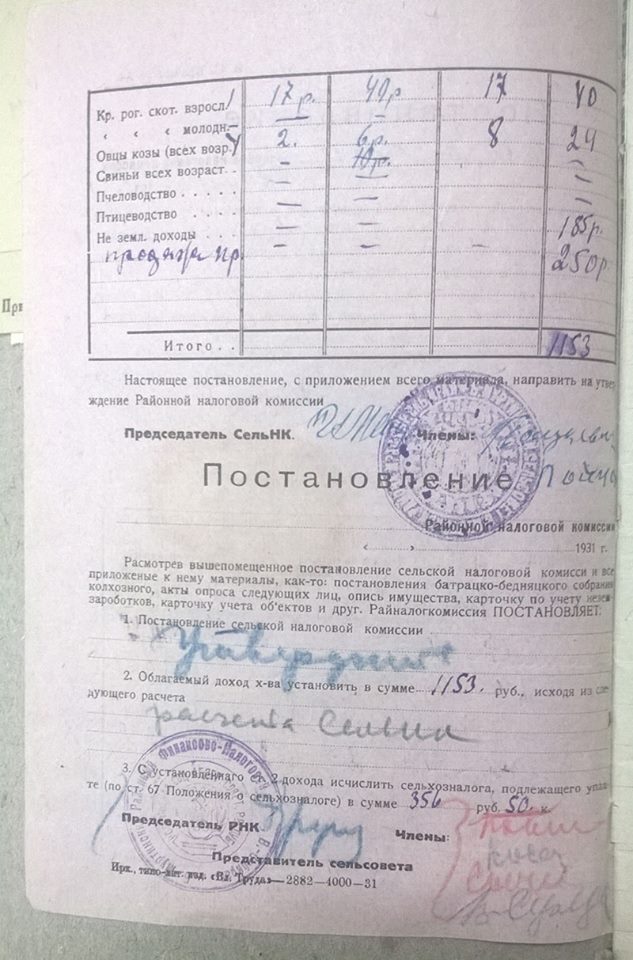 Кр. рог. скот. взросл/ 17 р. 40р 17 40
« « « молодн. – – –
Овцы козы (всех возр.) 4 2. 6р. 8 24
Свиньи всех возраст. . – 10р. –
Пчеловодство . . . . . – – –
Птицеводство . . . . – – –
Не земл. доходы . . . – – 185р.
продажа пр. – – – 250р
Итого . . 1153
Настоящее постановление, с приложением всего материала, направить на утвер
ждение Районной налоговой комиссии
Председатель СельНК. Члены:
Постановление
Районной налоговой комиссии
« » 1931 г.
Расмотрев вышепомещенное постановление сельской налоговой комисси и все
приложеные к нему материалы, как-то: постановления батрацко-бедняцкого собрания
колхозного, акты опроса следующих лиц, опись имущества, карточку по учету незем
зароботков, карточку учета об'ектов и друг. Райналогкомиссия ПОСТАНОВЛЯЕТ:
1. Постановление сельской налоговой комиссии
Утвердить
2. Облагаемый доход х-ва установить в сумме 1153. руб., исходя из сле
дующего расчета
расчета Сельнк
3. С установленного ст. 2 дохода исчислить сельхозналога, подлежащего упла
те (по ст. 67 Положения о сельхозналоге) в сумме 356 руб. 50 к.
Председатель РНК Члены:
Представитель сельсовета
Ирк., типо-лит. изд. «Вл. Труда»—2882—4000—31